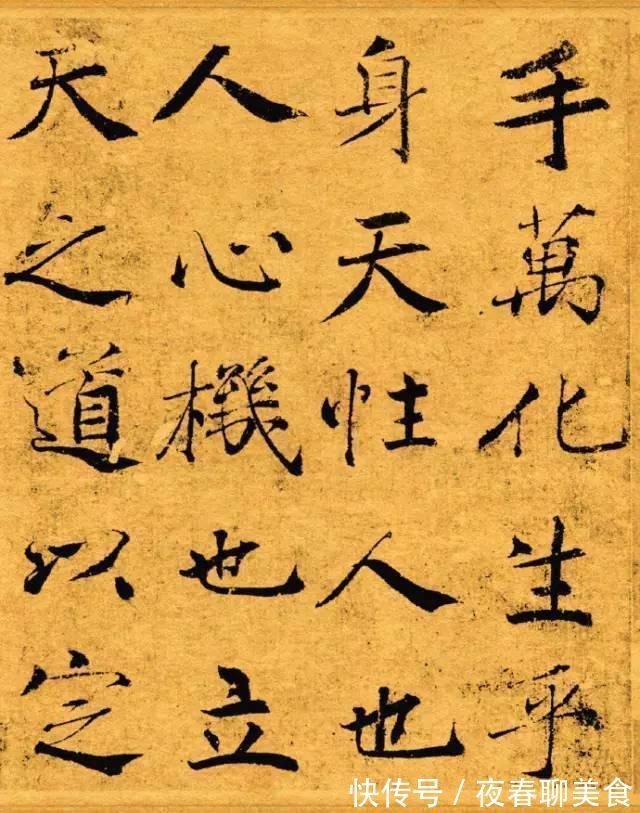 手萬化生乎
身天性人也
人心機也立
天之道以定
快传号/夜春聊美食